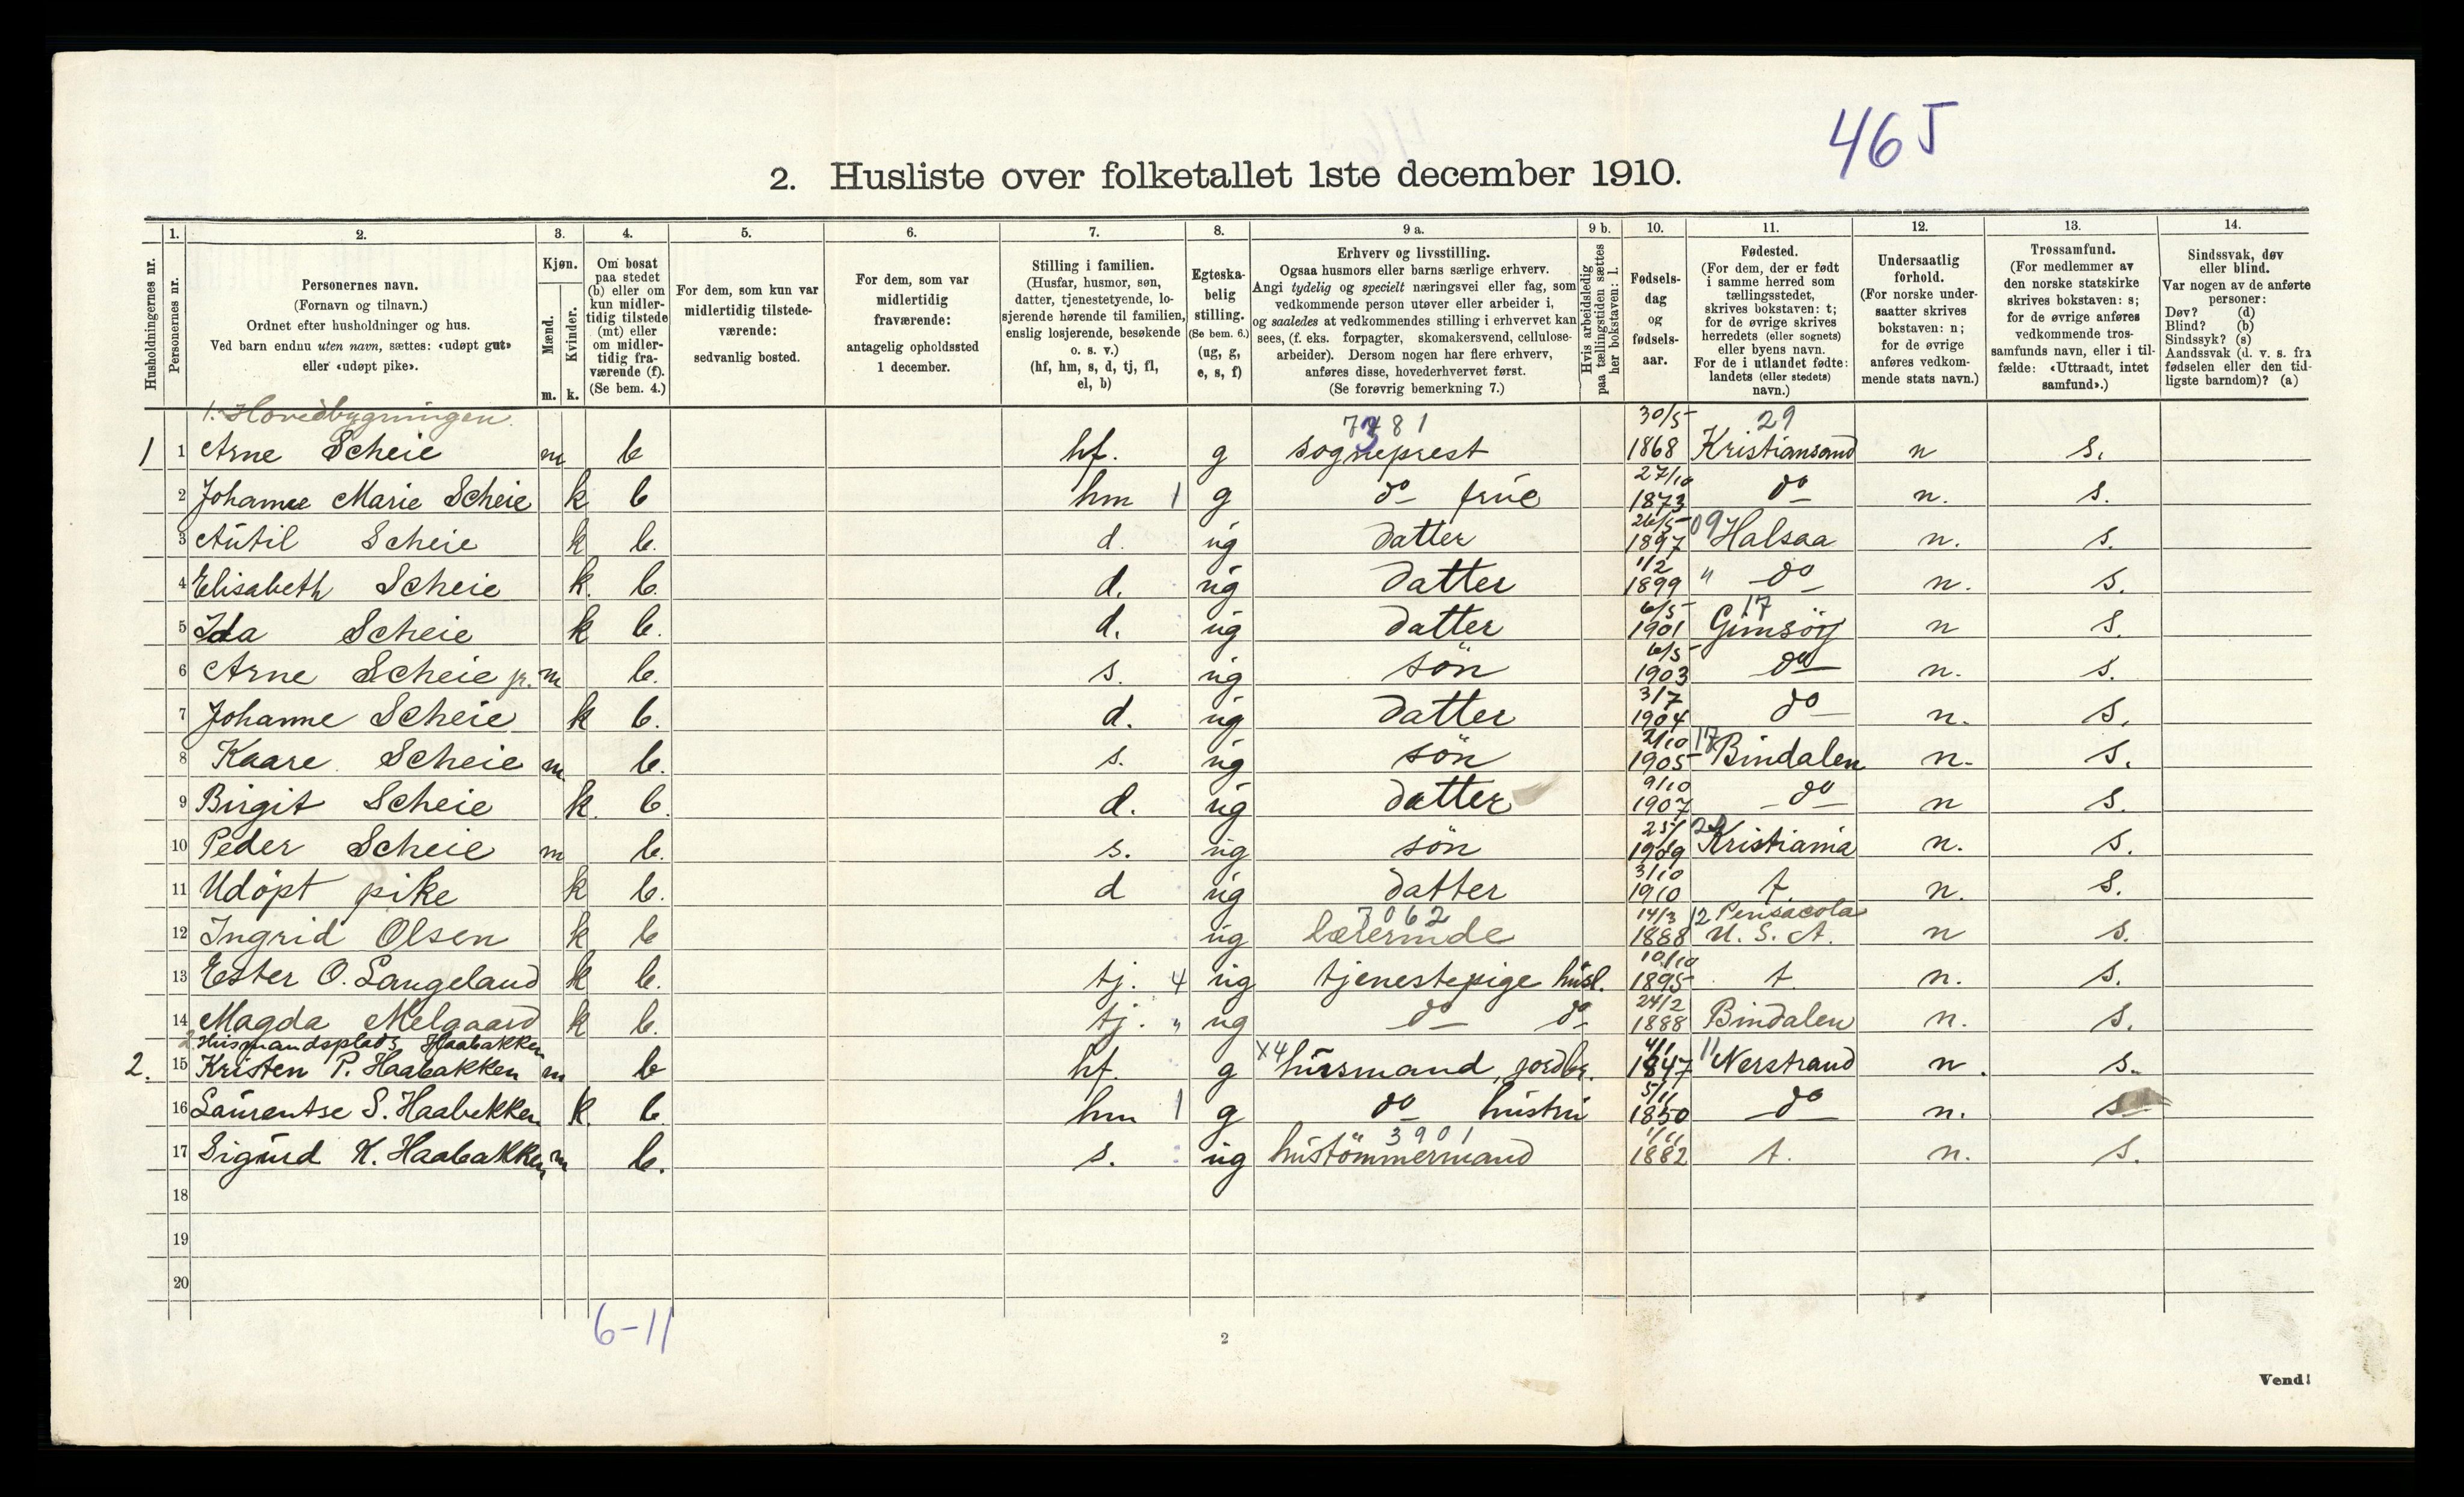 465
2. Husliste over folketallet 1ste december 1910.
Husholdningernes nr.
1. Personernes nr.
2. Personernes navn.
(Fornavn og tilnavn.)
Ordnet efter husholdninger og hus.
Ved barn endnu uten navn, sættes: «udøpt gut»
eller «udøpt pike».
3. Kjøn.
Mænd. m.
Kvinder. k.
4. Om bosat
paa stedet
(b) eller om
kun midler-
tidig tilstede
(mt) eller
om midler-
tidig fra-
værende (f).
(Se bem. 4.)
5. For dem, som kun var
midlertidig tilstede-
værende:
sedvanlig bosted.
6. For dem, som var
midlertidig
fraværende:
antagelig opholdssted
1 december.
7. Stilling i familien.
(Husfar, husmor, søn,
datter, tjenestetyende, lo-
sjerende hørende til familien,
enslig losjerende, besøkende
o. s. v.)
(hf, hm, s, d, tj, fl,
el, b)
8. Egteska-
belig
stilling.
(Se bem. 6.)
(ug, g,
e, s, f)
9 a. Erhverv og livsstilling.
Ogsaa husmors eller barns særlige erhverv.
Angi tydelig og specielt næringsvei eller fag, som
vedkommende person utøver eller arbeider i,
og saaledes at vedkommendes stilling i erhvervet kan
sees, (f. eks. forpagter, skomakersvend, cellulose-
arbeider). Dersom nogen har flere erhverv,
anføres disse, hovederhvervet først.
(Se forøvrig bemerkning 7.)
9 b. Hvis arbeidsledig
paa tællingstiden sættes
her bokstaven: l.
10. Fødsels-
dag
og
fødsels-
aar.
11. Fødested.
(For dem, der er født
i samme herred som
tællingsstedet,
skrives bokstaven: t;
for de øvrige skrives
herredets (eller sognets)
eller byens navn.
For de i utlandet fødte:
landets (eller stedets)
navn.)
12. Undersaatlig
forhold.
(For norske under-
saatter skrives
bokstaven: n;
for de øvrige
anføres vedkom-
mende stats navn.)
13. Trossamfund.
(For medlemmer av
den norske statskirke
skrives bokstaven: s;
for de øvrige anføres
vedkommende tros-
samfunds navn, eller i til-
fælde: «Uttraadt, intet
samfund».)
14. Sindssvak, døv
eller blind.
Var nogen av de anførte
personer:
Døv? (d)
Blind? (b)
Sindssyk? (s)
Aandssvak (d. v. s. fra
fødselen eller den tid-
ligste barndom)? (a)
1. Hovedbygningen.
1 1 Arne Scheie m b hf. g sogneprest 30/5 1868 29 Kristiansand n s.
2 Johanne Marie Scheie k b hm 1 g do frue 27/10 1873 do n. s.
3 Autil Scheie k b. d. ug datter 26/5 1897 09 Halsaa n. s.
4 Elisabeth Scheie k. b. d. ug datter 1/2 1899 " do n. s.
5 Ida Scheie k b. d. ug datter 6/5 1901 17 Gimsöy n s.
6 Arne Scheie jr. m b. s. ug sön 6/5 1903 do n. s.
7 Johanne Scheie k b. d. ug datter 3/7 1904 do n. s.
8 Kaare Scheie m. b. s. ug sön 2/10 1905 17 Bindalen n. s.
9 Birgit Scheie k. b. d. ug datter 9/10 1907 do n s.
10 Peder Scheie m b. s. ug sön 1909 Kristiania n. s.
11 Udöpt pike k b. d ug datter 3/10 1910 t. n. s.
12 Ingrid Olsen k b ug 7062 Lærerinde 14/3 1888 12 Pensacola U. S. A. n s.
13 Ester O. Langeland k b. tj. 4 ug tjenestepige husl. 10/10 1895 t. n. s.
14 Magda Melgaard k b. tj. " ug do do 24/2 1888 Bindalen n. s.
2 Husmandsplads Haabakken
2. 15 Kristen P. Haabakken m b hf. g x4 husmand, jordbr. 4/1 1847 11 Nerstrand n. s.
16 Laurentse S. Haabekken k. b. hm 1 g do hustru 5/11 1850 do n. s
17 Sigurd K. Haabakken m b. s. ug 3901 hustömmermand 1/11 1882 t. n. s.
18
19
20
6-11
2
Vend!